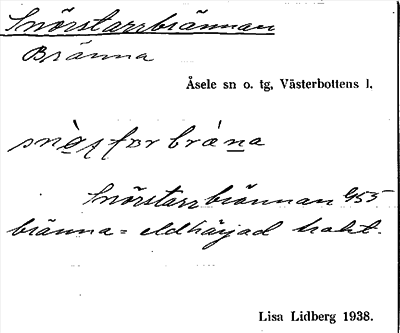 Snörstarrbrännan
Bränna
Åsele sn o. tg, Västerbottens l.
Snörstarrbrännan 955
bränna = eldhärjad trakt.
Lisa Lidberg 1938.